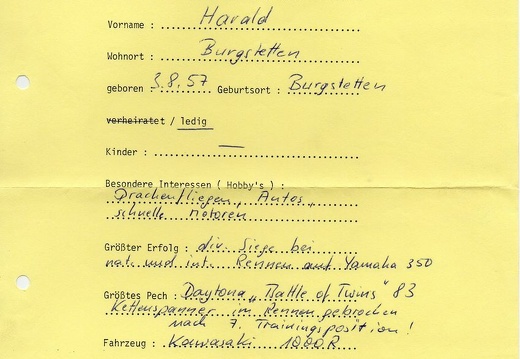 Vorname : Harald
Wohnort : Burgstetten
geboren : 3.8.57 Geburtsort : Burgstetten
verheiratet / ledig
Kinder : —
Besondere Interessen ( Hobby's ) :
Drachenfliegen, Autos,
schnelle Motoren
Größter Erfolg : div. Siege bei
nat. und int. Rennen auf Yamaha 350
Größtes Pech : Daytona „Battle of Twins" 83
Kettenspanner im Rennen gebrochen
nach 7. Trainingsposition!
Fahrzeug : Kawasaki 1000R